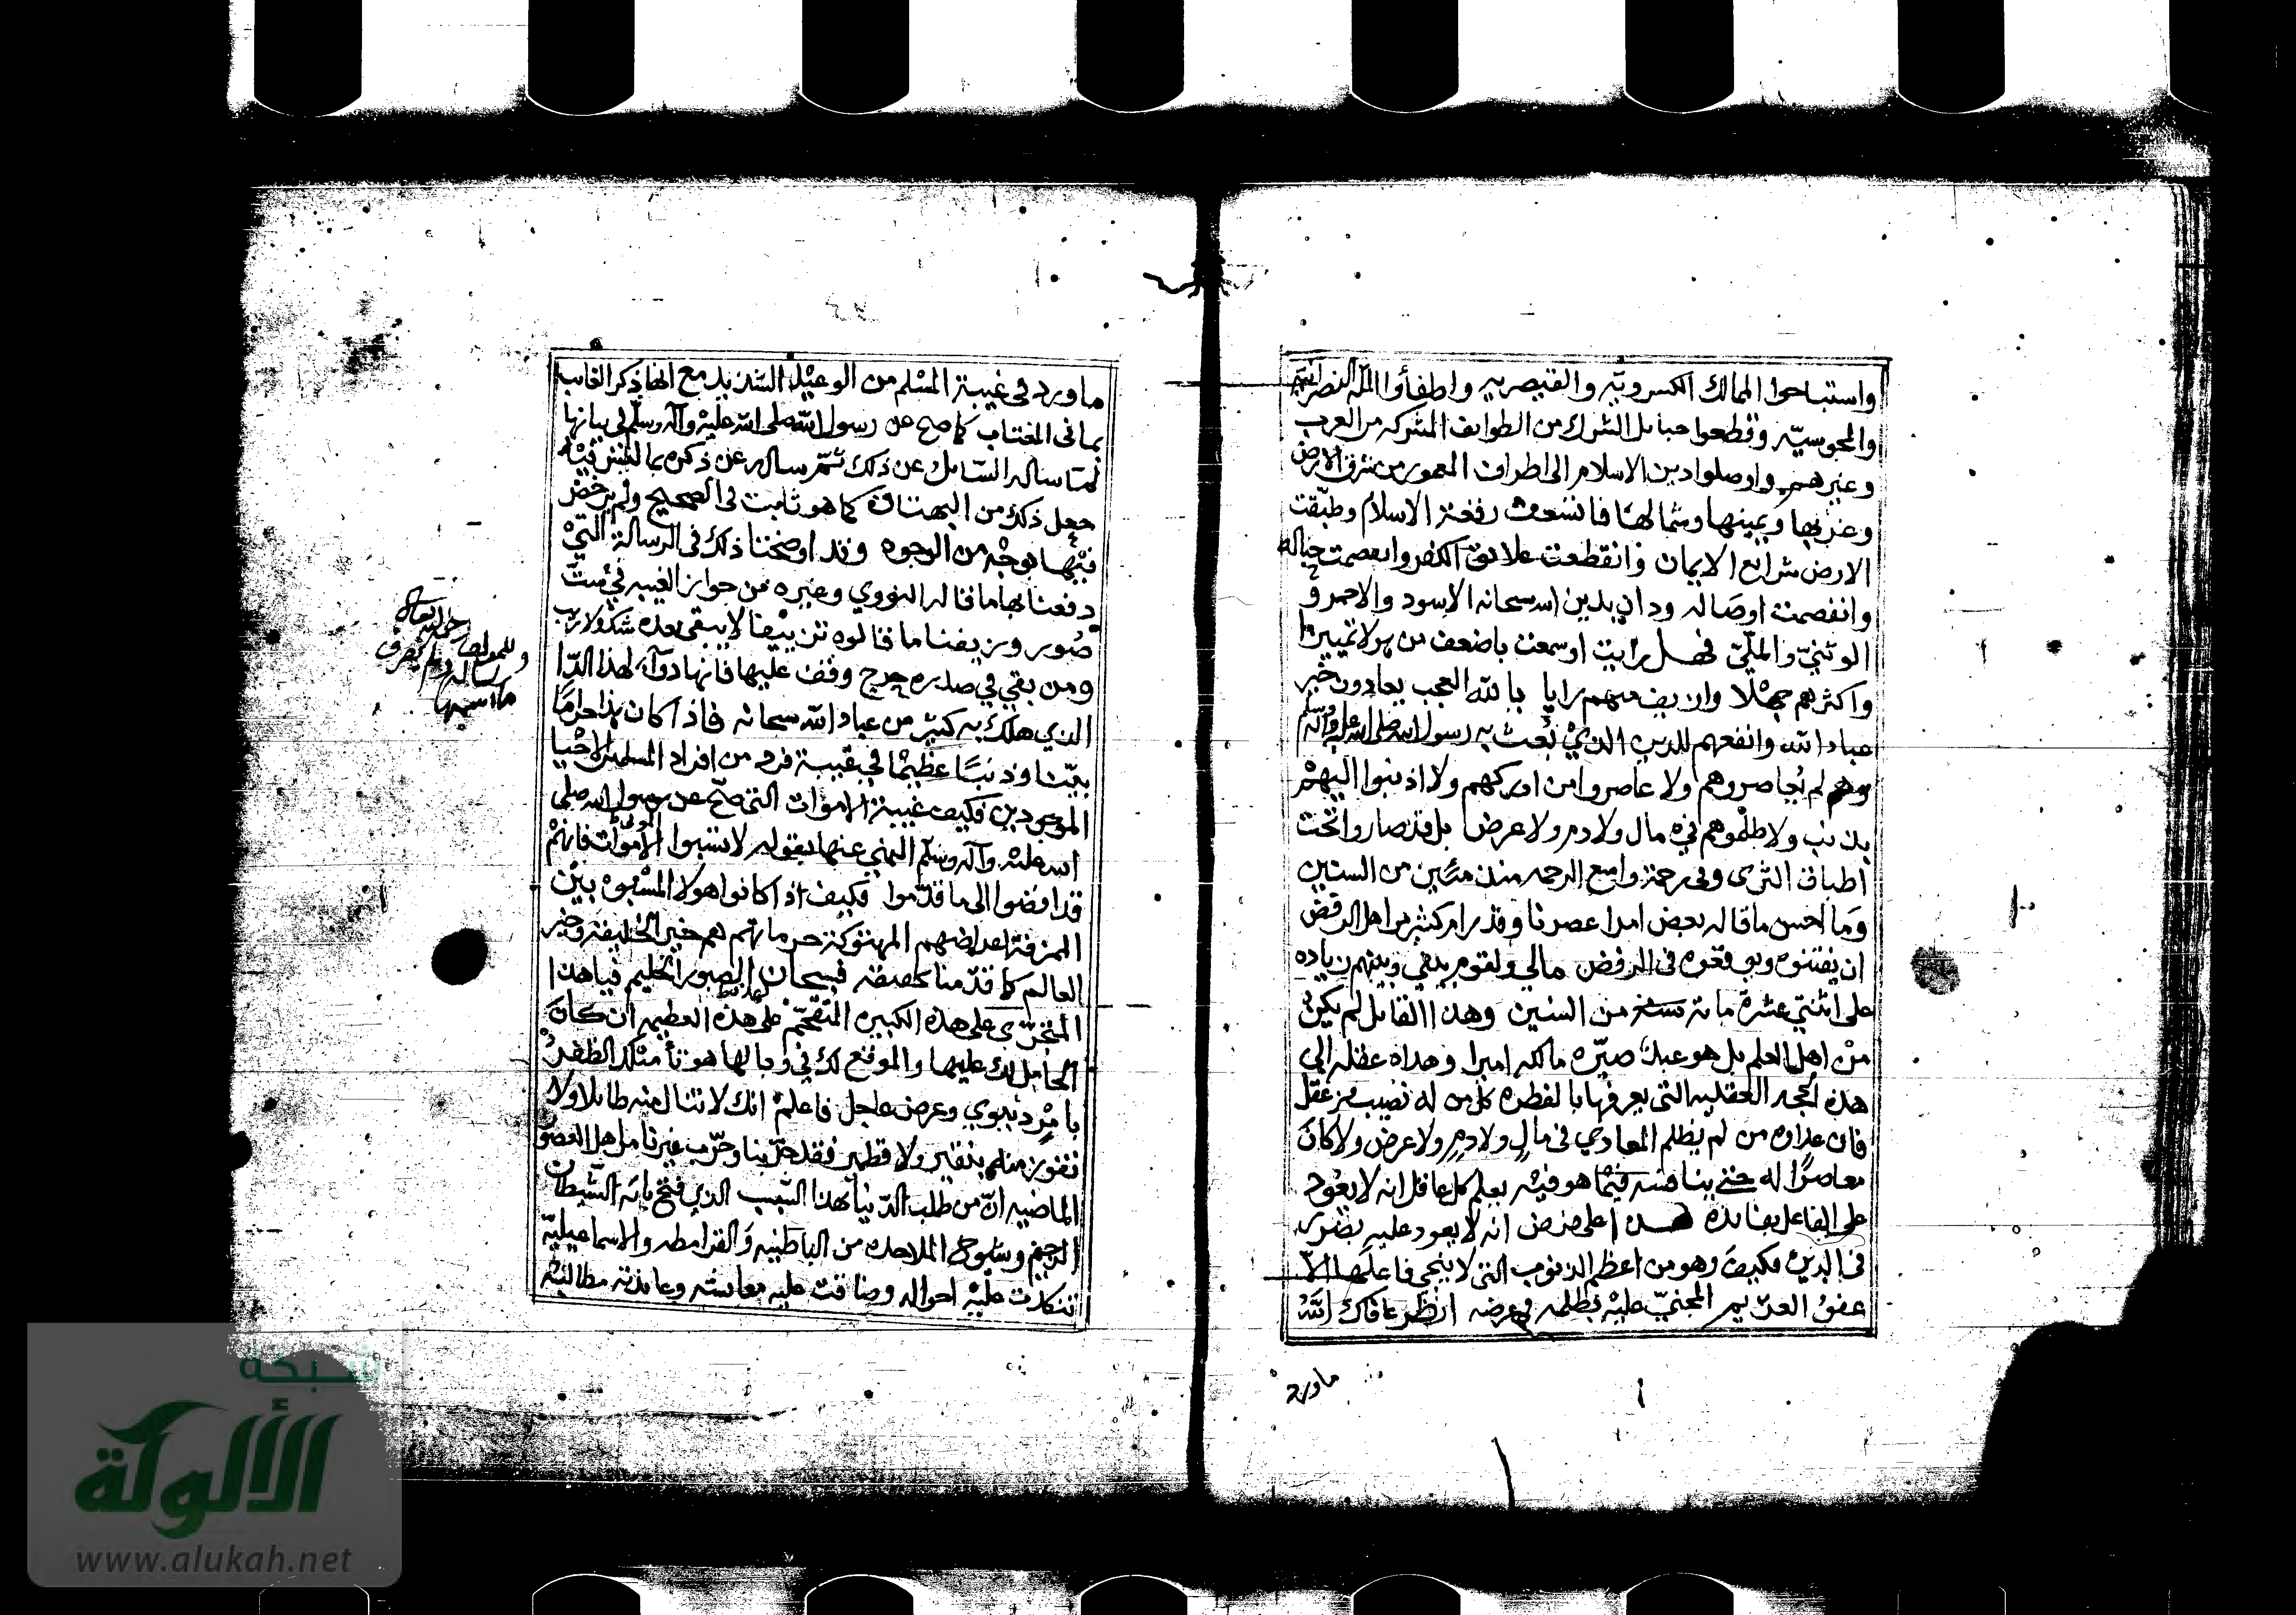 واستباحوا الممالك الكسرويّه والقيصريه واطفأوا الملّه النصرانيّه
والمجوسيّه وقطعوا حبايل الشرك من الطوايف المشركه من العرب
وغيرهم واوصلوا دين الاسلام الى اطراف المعمور من شرق الارض
وغربها ويمينها وشمالها فاتسعت رقعة الاسلام وطبّقت
الارض شرائع الايمان وانقطعت علايق الكفر وانفصمت حباله
وانفصمت اوصاله ودان بدين الله سبحانه الاسود والاحمر و
الوثنيّ والملّيّ فهل رايت او سمعت باضعف من هولا تمييزا
واكثرهم جهلا وازيف منهم رايا يا لله العجب يعادون خير
عباد الله وانفعهم للدين الذي بُعث به رسول الله صلى الله عليه وآله وسلم
وهم لم يُعاصروهم ولا عاصروا من ادركهم ولا اذنبوا اليهم
بذنب ولا ظلموهم في مال ولا دم ولا عرض بل قد صاروا تحت
اطباق الثرى وفي رحمة واسع الرحمه منذ مئين من السنين
وما احسن ما قاله بعض امرا عصرنا وقد رام كثير من اهل الرفض
ان يفتنوه ويوقعوه في الرفض مالي ولقوم بيني وبينهم زياده
على اثنتي عشرة مائة من السنين وهذا القايل لم يكن
من اهل العلم بل هو عبد صيّره مالكه اميرا وهداه عقله الى
هذه الحجه العقليه التي يعرفها بالفطره كل من له نصيب من عقل
فان عداوه من لم يظلم المعادي في مال ولا دم ولا عرض ولا كان
معاصرًا له حتى ينافسه فيما هو فيه يعلم كل عاقل انه لا يعود
على الفاعل بفائده هذا على فرض انه لا يعود عليه بضرر
في الدين فكيف وهو من اعظم الذنوب التي لا ينجي فاعلها الا
عفو الغريم المجنيّ عليه بظلمه في عرضه انظر عافاك الله
ماورد
ماورد في غيبة المسلم من الوعيد الشديد مع انها ذكر الغايب
بما في المغتاب كما صح عن رسول الله صلى الله عليه وآله وسلم في بيانها
لمّا ساله السّايل عن ذلك ثمّ ساله عن ذكره بما ليس فيه
جعل ذلك من البهتان كما هو ثابت في الصحيح ولم يرخص
فيها بوجه من الوجوه وقد اوضحنا ذلك في الرسالة التي
دفعنا بها ما قاله النووي وغيره من جواز الغيبه في ست
صُور وزيفنا ما قالوه تزييفا لا يبقى بعده شك ولا ريب
ومن بقي في صدره حرج وقف عليها فانها دوآء لهذا الدّا
الذي هلك به كثير من عباد الله سبحانه فاذا كان هذا حرامًا
بحتا وذنبًا عظيمًا في غيبة فرد من افراد المسلمين الاحيا
الموجودين فكيف غيبة الاموات التي صحّ عن رسول الله صلى
الله عليه وآله وسلّم النهي عنها بقوله لا تسبوا الاموات فانهم
قد افضوا الى ما قدّموا فكيف اذا كانوا هولا المسبوبين
الممزقة اعراضهم المهتوكة حرماتهم هم خير الخليقة وخير
العالم كما قدّمنا تحقيقه فسبحان الصبور الحليم فيا هذا
المتجرّى على هذه الكبيره المتقحّم على هذه العظيمه ان كان
الحامل لك عليها والموقع لك في وبالها هو تأميلك الظفر
بامر دنيوي وعرض عاجل فاعلم انك لا تنال منه طايلا ولا
تفوز منه بنقير ولا قطمير فقد جرّبنا وجرّب غيرنا من اهل العصور
الماضيه انّ من طلب الدّنيا بهذا السّبب الذي فتح بابه الشيطان
الرجيم وشيوخ الملاحده من الباطنيه والقرامطه والاسماعيليّه
تنكدت عليه احواله وضاقت عليه معايشه وعاندته مطالبه
وللمولف رحمه الله تعالى
رسالة دفع الريب
www.alukah.net
شبكة
الألوكة